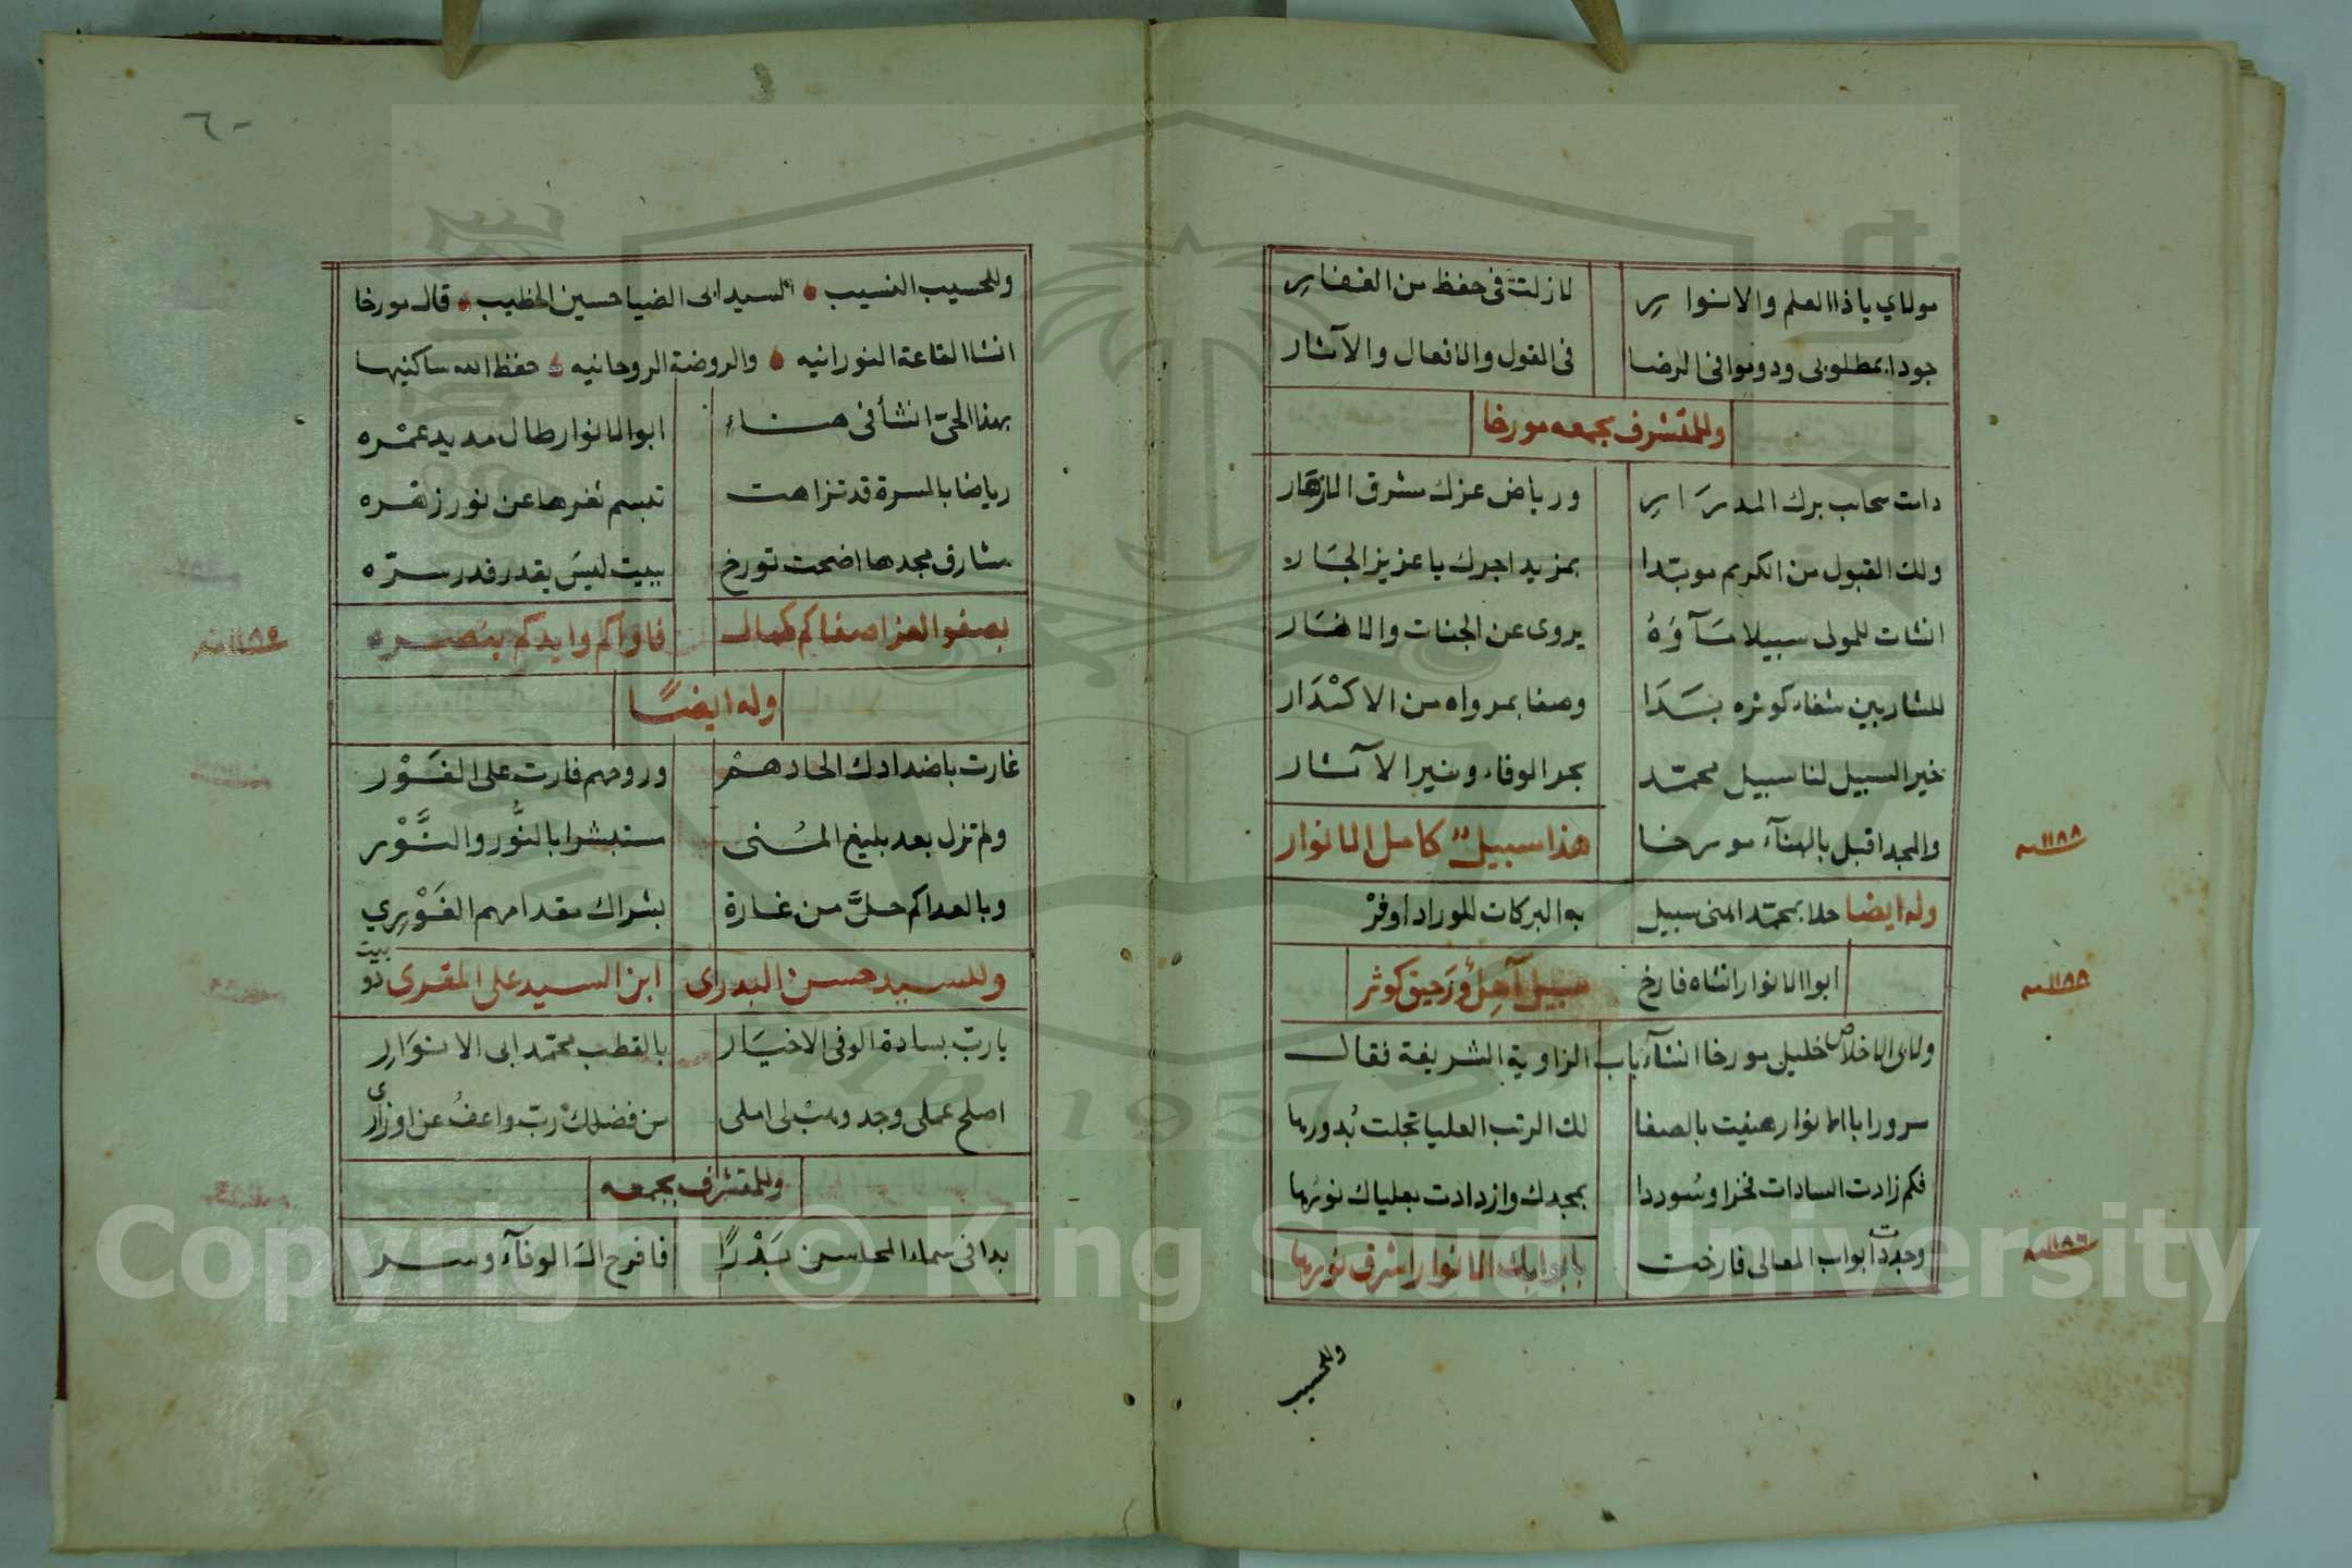 مولاي ياذا العلم والانوار لازلت فى حفظ من الغفار
جودا بمطلوبى ودوموا فى الرضا فى القول والافعال والآثار
وللمتشرف بجمعه مورخا
دامت سحاب برك المدرار ورياض عزك مشرق الازهار
ولك القبول من الكريم موبّدا بمزيد اجرك يا عزيز الجار
انشات للمولى سبيلا مآؤه يروى عن الجنات والانهار
للشاربين شفاء كوثره بدا وصفا بمرواه من الاكدار
خير السبيل لنا سبيل محمّد بحر الوفاء ومنير الآثار
والمجد اقبل بالهنآء مورخا هذا سبيل كامل الانوار
١١٨٨ سنه
وله ايضا حلا بمحمّد المنى سبيل به البركات للوراد اوفر
ابوا الانوار انشاه فارخ سبيل آجل ورحيق كوثر
١١٨٨ سنه
ولاى الاخلاص خليل مورخا انشآء باب الزاوية الشريفة فقال
سرورا ابا الانوار هنيت بالصفا لك الرتب العليا تجلت بدورها
فكم زادت السادات فخرا وسوددا بمجدك وازدادت بعلياك نورها
وجددت ابواب المعالى فارخت بابوابك الانوار اشرق نورها
١١٨٦ سنه
وللحسيب
٦٠
وللحسيب النسيب السيد ابى الضيا حسين الخطيب قال مورخا
انشا القاعة النورانيه والروضة الروحانيه حفظ الله ساكنيها
بهذا الحىّ انشأ فى هناء ابوا الانوار طال مديد عمره
رياضا بالمسرة قد تزاهت تبسم ثغرها عن نور زهره
مشارق مجدها اضحت تورخ ببيت ليس يقدر قدر سرّه
بصفو العز اصفاكم كمال فاواكم وايدكم بنصره
١١٨٤ سنه
وله ايضًا
غارت باضدادك الحادهم وروحهم فارت على الفَوْر
ولم تزل بعد بليغ المنى ستبشرا بالنُّور والنَّوْر
وبالعداكم حلَّ من غارة بشراك مقدامهم الغَوْرِي
وللسيد حسن البدرى ابن السيد على المقرى ذو بيت
يا ربّ بسادة الوفى الاخيار بالقطب محمّد ابى الانوار
اصلح عملى وجد وهبْ لى املى من فضلك ربّ واعف عن اوزارى
وللمتشرف بجمعه
بدا فى سماء المحاسن بَدْرًا فافرح الـ الوفآء وسر
Copyright © King Saud University
1957